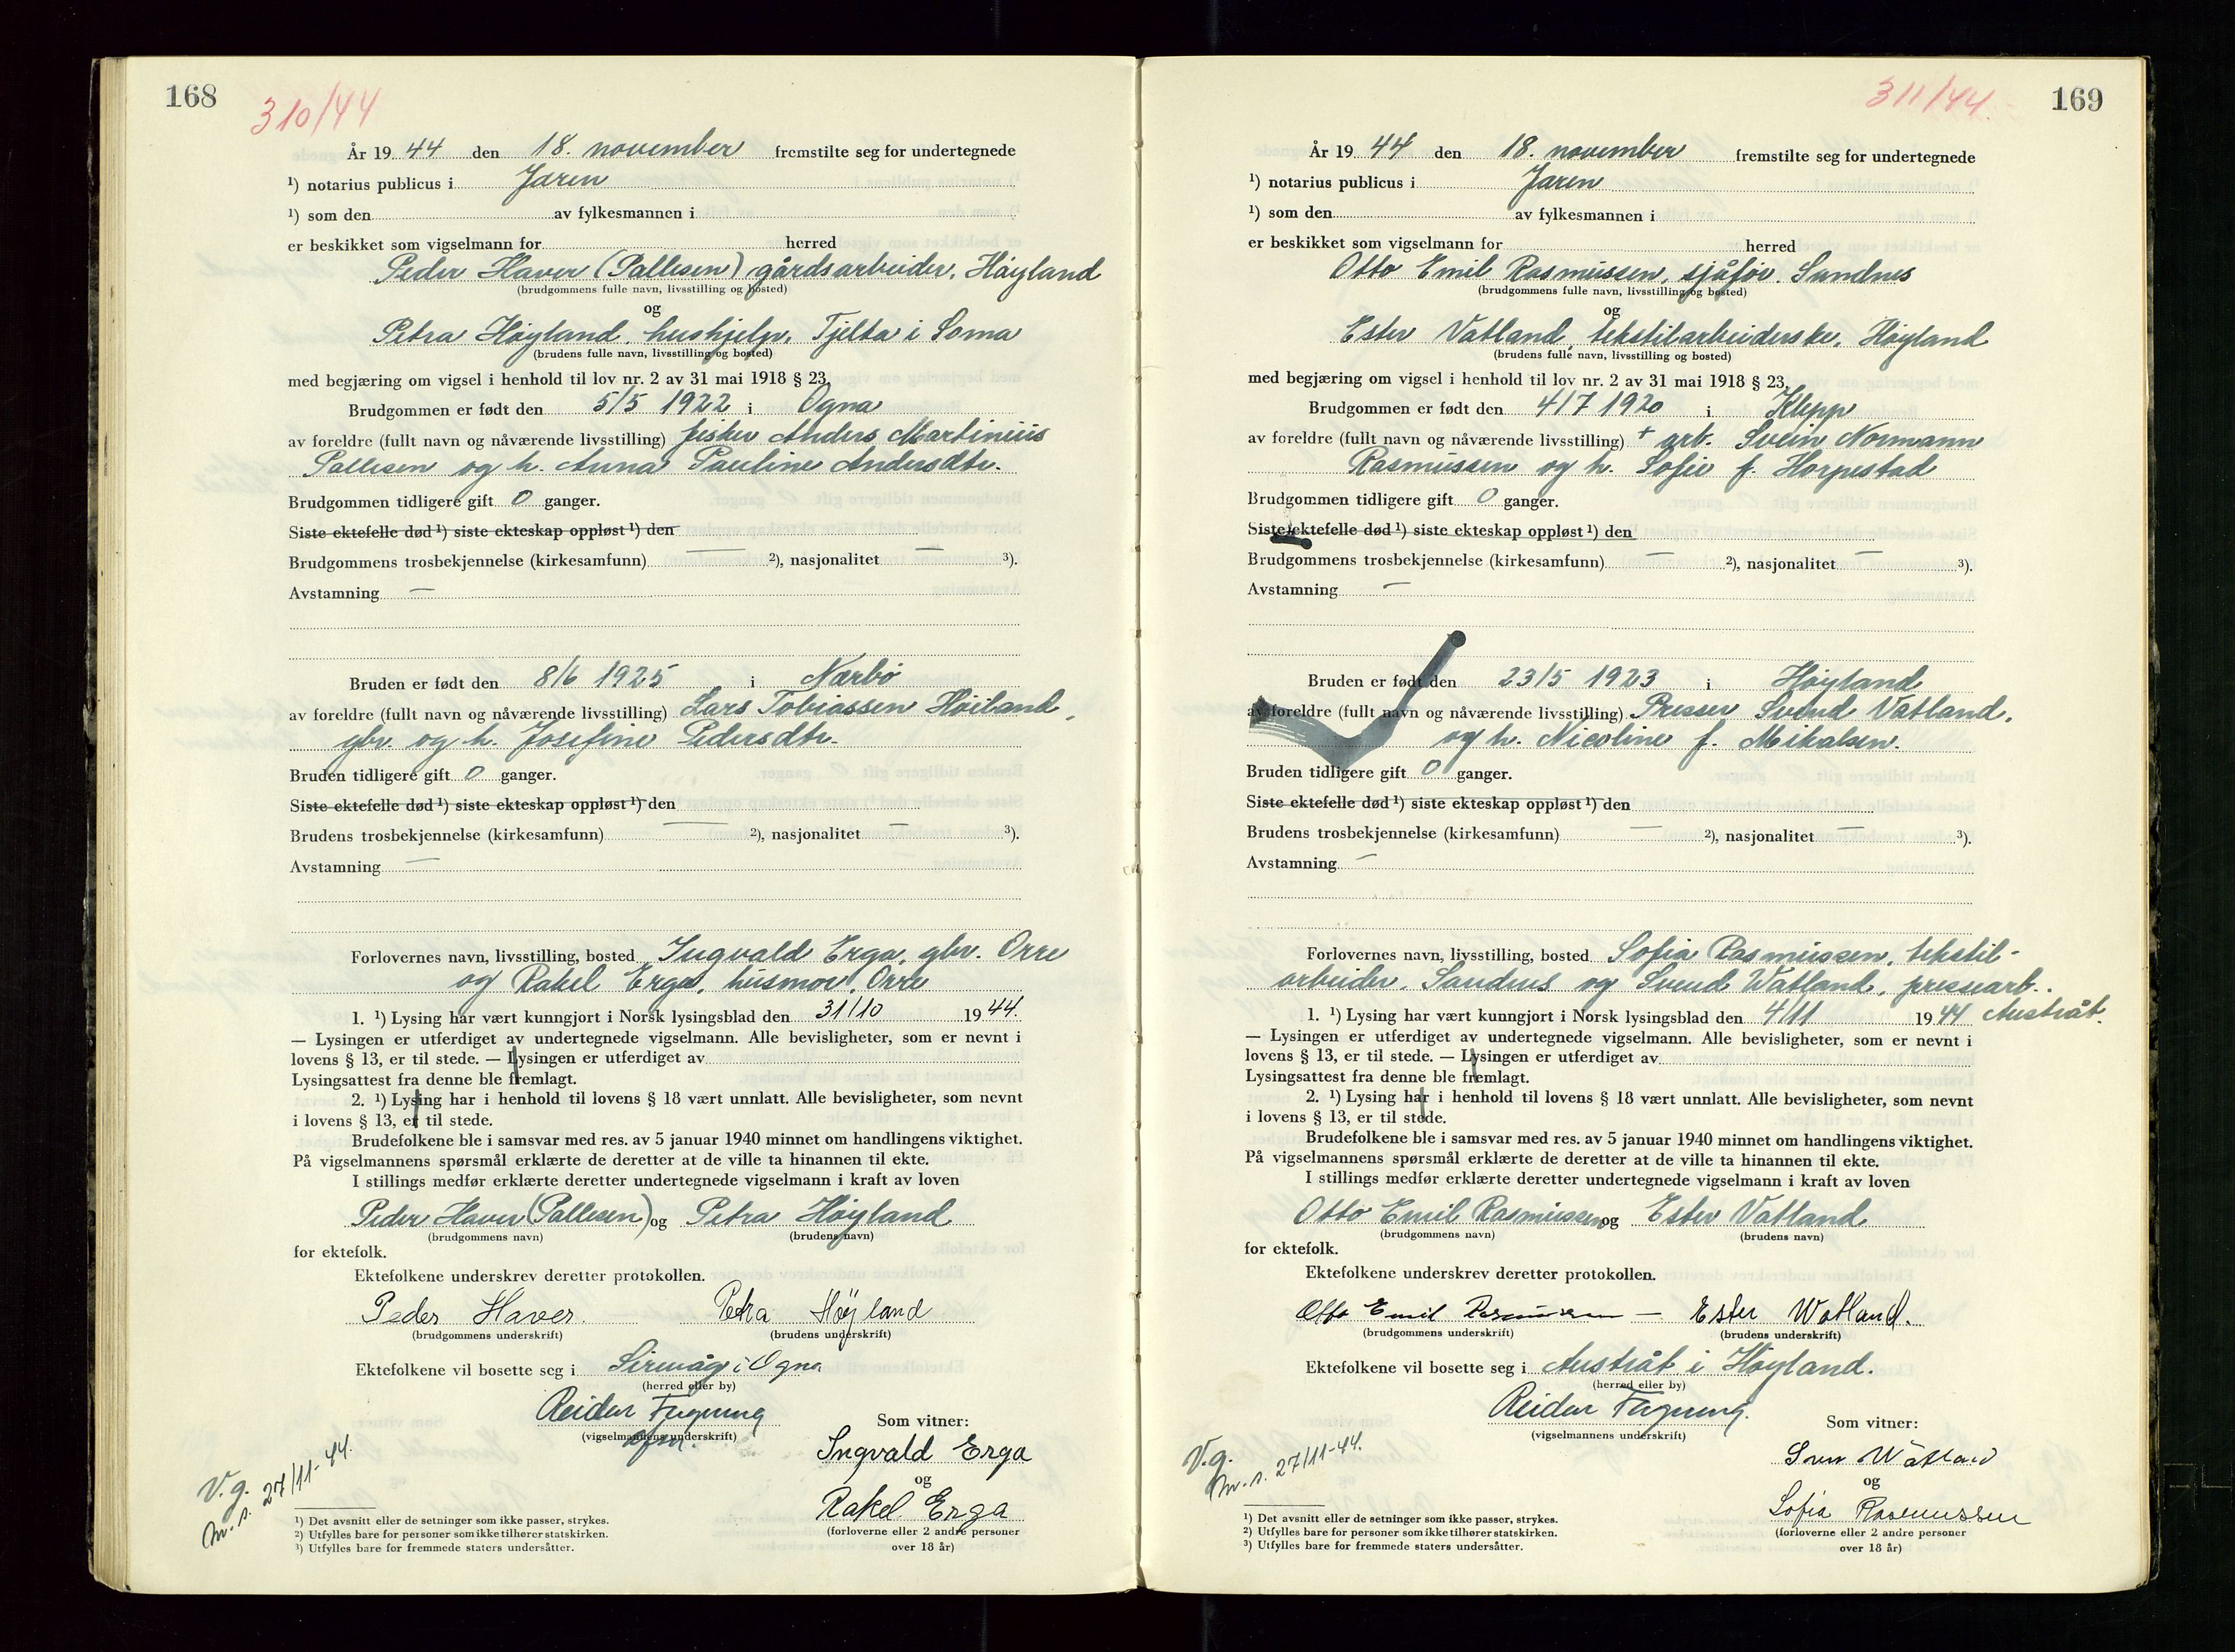 168
310/44
År 19 44 den 18. november fremstilte seg for undertegnede
¹) notarius publicus i Jæren
¹) som den av fylkesmannen i
er beskikket som vigselmann for herred
Peder Haver (Pallesen) gårdsarbeider, Høyland
(brudgommens fulle navn, livsstilling og bosted)
og
Petra Høyland, hushjelp, Tjelta i Soma
(brudens fulle navn, livsstilling og bosted)
med begjæring om vigsel i henhold til lov nr. 2 av 31 mai 1918 § 23.
Brudgommen er født den 5/5 1922 i Ogna
av foreldre (fullt navn og nåværende livsstilling) fisker Anders Martinius
Pallesen og h. Anna Pauline Andersdtr.
Brudgommen tidligere gift 0 ganger.
Siste ektefelle død ¹) siste ekteskap oppløst ¹) den
Brudgommens trosbekjennelse (kirkesamfunn) — ²), nasjonalitet — ³).
Avstamning —
Bruden er født den 8/6 1925 i Nærbø
av foreldre (fullt navn og nåværende livsstilling) Lars Tobiassen Høiland,
gbr. og h. Josefine Pedersdtr.
Bruden tidligere gift 0 ganger.
Siste ektefelle død ¹) siste ekteskap oppløst ¹) den
Brudens trosbekjennelse (kirkesamfunn) — ²), nasjonalitet — ³).
Avstamning —
Forlovernes navn, livsstilling, bosted Ingvald Erga, gbr. Orre
og Rakel Erga, husmor, Orre
1. ¹) Lysing har vært kunngjort i Norsk lysingsblad den 31/10 19 44.
— Lysingen er utferdiget av undertegnede vigselmann. Alle bevisligheter, som er nevnt i
lovens § 13, er til stede. — Lysingen er utferdiget av
Lysingsattest fra denne ble fremlagt.
2. ¹) Lysing har i henhold til lovens § 18 vært unnlatt. Alle bevisligheter, som nevnt
i lovens § 13, er til stede.
Brudefolkene ble i samsvar med res. av 5 januar 1940 minnet om handlingens viktighet.
På vigselmannens spørsmål erklærte de deretter at de ville ta hinannen til ekte.
I stillings medfør erklærte deretter undertegnede vigselmann i kraft av loven
Peder Haver (Pallesen) og Petra Høyland
(brudgommens navn) (brudens navn)
for ektefolk.
Ektefolkene underskrev deretter protokollen.
Peder Haver. Petra Höyland
(brudgommens underskrift) (brudens underskrift)
Ektefolkene vil bosette seg i Sirevåg i Ogna
(herred eller by)
Reidar
(vigselmannens underskrift)
Som vitner:
Ingvald Erga
og
Rakel Erga
(forloverne eller 2 andre personer
over 18 år)
V.g.
m. s. 27/11-44.
¹) Det avsnitt eller de setninger som ikke passer, strykes.
²) Utfylles bare for personer som ikke tilhører statskirken.
³) Utfylles bare for fremmede staters undersåtter.
311/44.
169
År 19 44 den 18. november fremstilte seg for undertegnede
¹) notarius publicus i Jæren
¹) som den av fylkesmannen i
er beskikket som vigselmann for herred
Otto Emil Rasmussen, sjåfør, Sandnes
(brudgommens fulle navn, livsstilling og bosted)
og
Ester Vatland, tekstilarbeiderske, Høyland
(brudens fulle navn, livsstilling og bosted)
med begjæring om vigsel i henhold til lov nr. 2 av 31 mai 1918 § 23.
Brudgommen er født den 4/7 1920 i Klepp
av foreldre (fullt navn og nåværende livsstilling) + arb. Svein Normann
Rasmussen og h. Sofie f. Horpestad
Brudgommen tidligere gift 0 ganger.
Siste ektefelle død ¹) siste ekteskap oppløst ¹) den
Brudgommens trosbekjennelse (kirkesamfunn) — ²), nasjonalitet — ³).
Avstamning —
Bruden er født den 23/5 1923 i Høyland
av foreldre (fullt navn og nåværende livsstilling) Presser Svend Vatland,
og h. Nicoline f. Mikalsen.
Bruden tidligere gift 0 ganger.
Siste ektefelle død ¹) siste ekteskap oppløst ¹) den
Brudens trosbekjennelse (kirkesamfunn) — ²), nasjonalitet — ³).
Avstamning —
Forlovernes navn, livsstilling, bosted Sofia Rasmussen, tekstil-
arbeider, Sandnes og Svend Watland, pressearb.
1. ¹) Lysing har vært kunngjort i Norsk lysingsblad den 4/11 19 44 Austråt.
— Lysingen er utferdiget av undertegnede vigselmann. Alle bevisligheter, som er nevnt i
lovens § 13, er til stede. — Lysingen er utferdiget av
Lysingsattest fra denne ble fremlagt.
2. ¹) Lysing har i henhold til lovens § 18 vært unnlatt. Alle bevisligheter, som nevnt
i lovens § 13, er til stede.
Brudefolkene ble i samsvar med res. av 5 januar 1940 minnet om handlingens viktighet.
På vigselmannens spørsmål erklærte de deretter at de ville ta hinannen til ekte.
I stillings medfør erklærte deretter undertegnede vigselmann i kraft av loven
Otto Emil Rasmussen og Ester Vatland
(brudgommens navn) (brudens navn)
for ektefolk.
Ektefolkene underskrev deretter protokollen.
Otto Emil Rasmussen — Ester Watland.
(brudgommens underskrift) (brudens underskrift)
Ektefolkene vil bosette seg i Austråt i Høyland.
(herred eller by)
Reidar
(vigselmannens underskrift)
Som vitner:
Sven Watland
og
Sofia Rasmussen
(forloverne eller 2 andre personer
over 18 år)
V.g.
m. s. 27/11-44.
¹) Det avsnitt eller de setninger som ikke passer, strykes.
²) Utfylles bare for personer som ikke tilhører statskirken.
³) Utfylles bare for fremmede staters undersåtter.